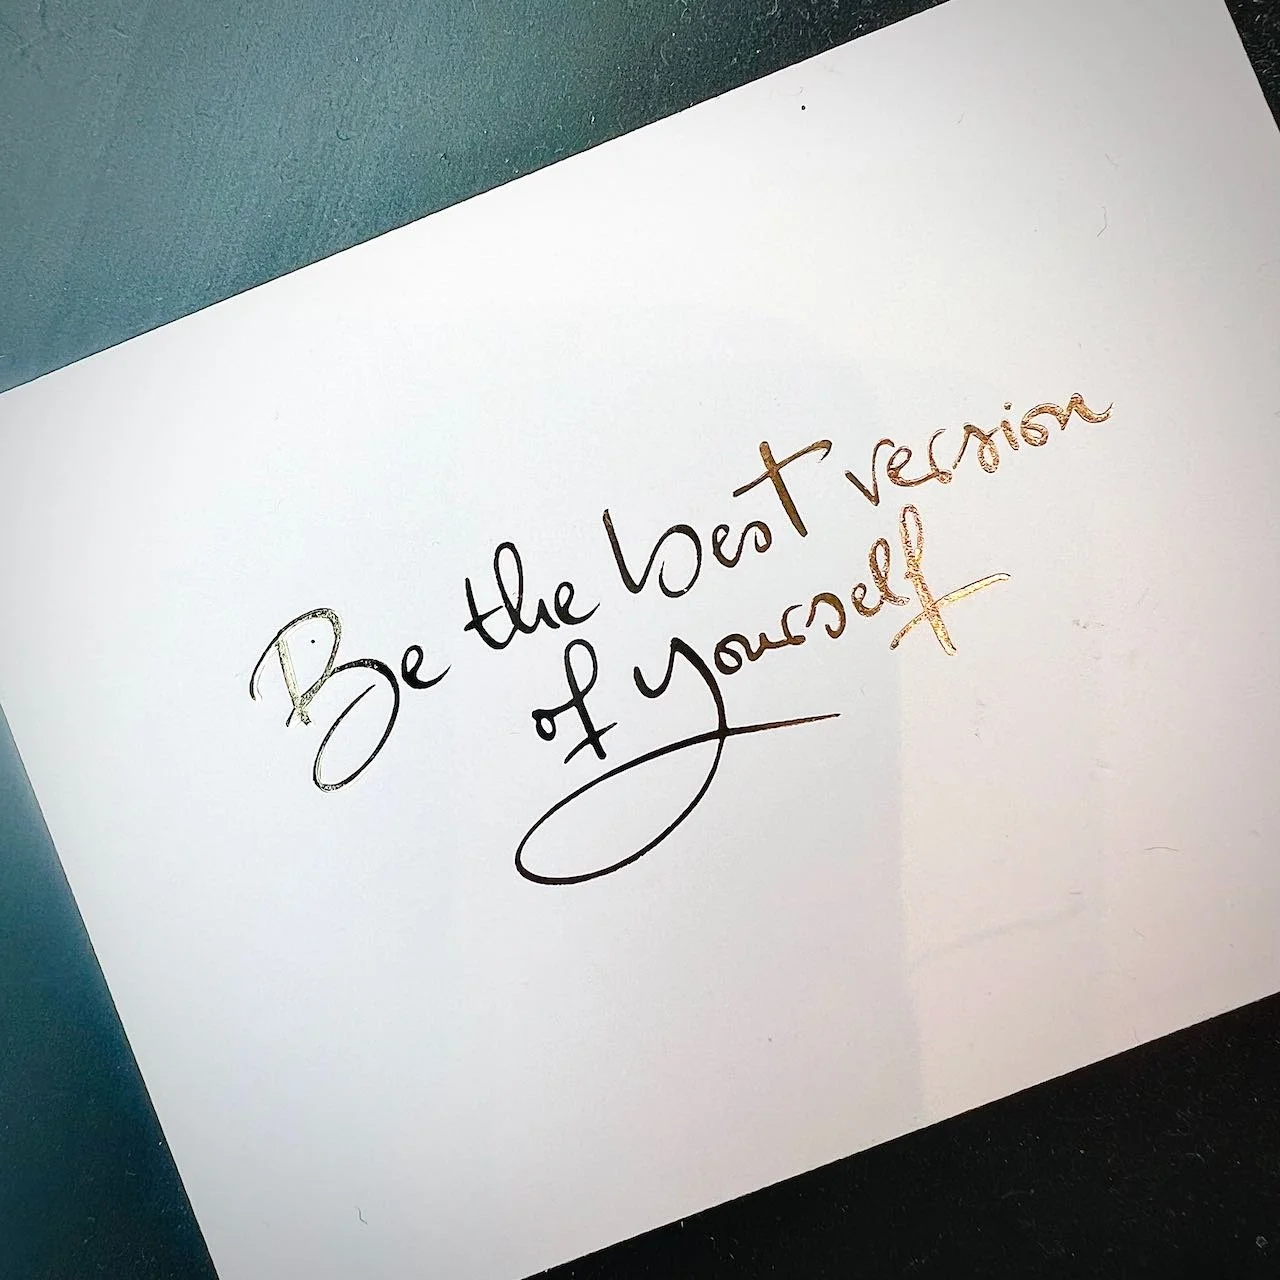 Be the best version
of yourself